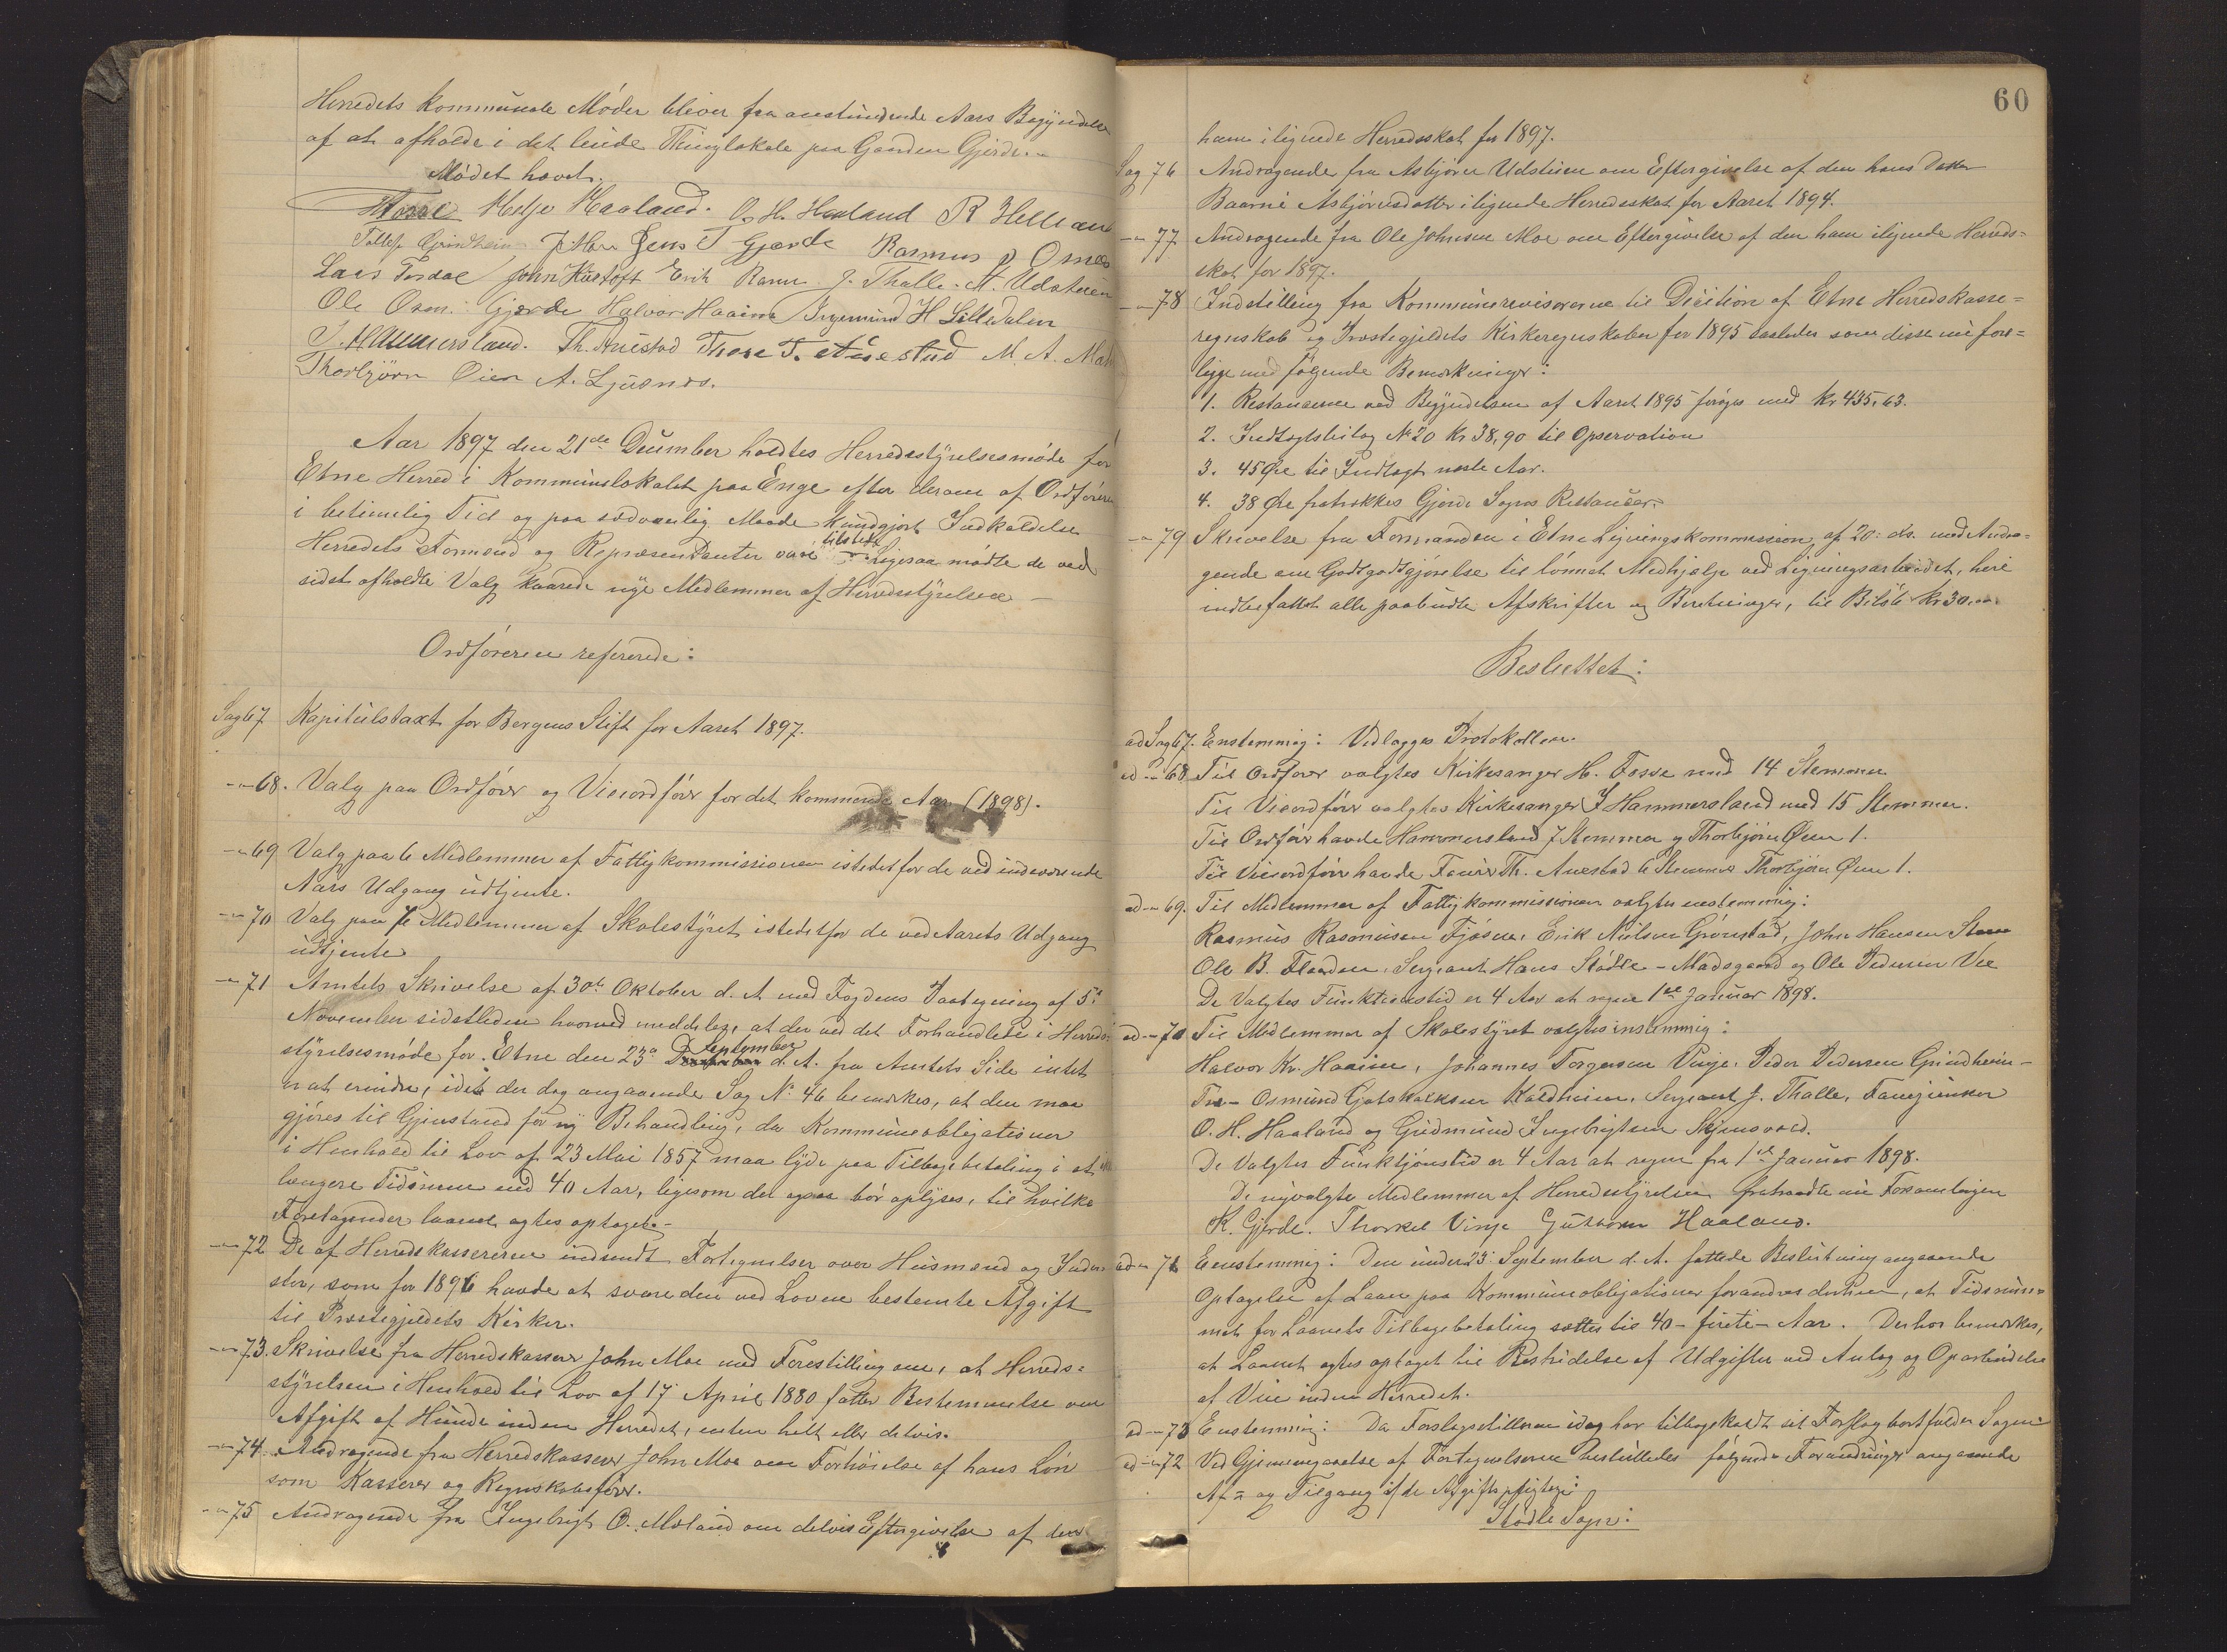 Herredets kommunale Møder bliver fra anstundende Aars Begyndelse
af at afholde i det leiede Thinglokale paa Gaarden Gjerde.-
Mødet hævet.
Fosse Helje Haaland. O. H. Haaland R Helland
Tollef Grindheim J. Moe Jens T Gjerde Rasmus P Osnes
Lars Fosdal John Håstoft Erik Rame J. Thalle. A. Udsteien
Ole Osm. Gjerde Halvor Haaim Ingemund H Lilledalen
J. Hammersland. Th. Anestad Thore T. Anestad M. A. Moe
Thorbjørn Øien A. Ljusnes.
Aar 1897 den 21de December holdtes Herredsstyrelsesmøde for
Etne Herred i Kommunelokalet paa Enge efter derom af Ordføreren
i betimelig Tid og paa sædvanlig Maade kundgjort Indkaldelse
Herredets Formænd og Repræsentanter vare tilstede Ligesaa mødte de ved
sidst afholdte Valg kaarede nye Medlemmer af Herredsstyrelsen -
Ordføreren refererede:
Sag 67 Kapitelstaxt for Bergens Stift for Aaret 1897.
-"-68. Valg paa Ordfører og Viceordfører for det kommende Aar (1898).
-"-69 Valg paa 6 Medlemmer af Fattigkommissionen istedetfor de ved indeværende
Aars Udgang udtjente.
-"-70 Valg paa 7 Medlemmer af Skolestyret istedetfor de ved Aarets Udgang
udtjente
-"-71 Amtets Skrivelse af 30te Oktober d. A. med Fogdens Paategning af 5te
November sidstleden hvorved meddeles, at der ved det Forhandlede i Herreds-
styrelsesmøde for Etne den 23de September d. A. fra Amtets Side intet
er at erindre, idet der dog angaaende Sag No 46 bemærkes, at den maa
gjøres til Gjenstand for ny Behandling, da Kommuneobligationer
i Henhold til Lov af 23 Mai 1857 maa lyde paa Tilbagebetaling i et
længere Tidsrum end 40 Aar, ligesom det ogsaa bør oplyses, til hvilke
Foretagender laanet agtes optaget.-
-"-72 De af Herredskassereren indsendt Fortegnelser over Husmænd og Inder-
ster, som for 1896 havde at svare den ved Loven bestemte Afgift
til Præstegjeldets Kirker.
-"-73. Skrivelse fra Herredskasserer John Moe med Forestilling om, at Herreds-
styrelsen i Henhold til Lov af 17 April 1880 fatter Bestemmelse om
Afgift af Hunde inden Herredet, enten helt eller delvis.
-"-74 Andragende fra Herredskasserer John Moe om Forhøielse af hans Løn
som Kasserer og Regnskabsfører.
-"-75 Andragende fra Ingebrigt O. Mæland om delvis Eftergivelse af den
60
ham ilignede Herredsskat for 1897.
Sag 76 Andragende fra Asbjørn Udsteien om Eftergivelse af den hans Datter
Baarni Asbjørnsdatter ilignede Herredsskat for Aaret 1894.
-"-77 Andragende fra Ole Johnsen Moe om Eftergivelse af den ham ilignede Herreds-
skat for 1897.
-"-78 Indstilling fra Kommunerevisorerne til Decision af Etne Herredskasse-
regnskab og Præstegjeldets Kirkeregnskaber for 1895 saaledes som disse nu fore-
ligge med følgende Bemærkninger:
1. Restancerne ved Begyndelsen af Aaret 1895 forøges med Kr 435,63.
2. Indtægtsbilag No 20 Kr 38,90 til Opservation
3. 45 Øre til Indtægt næste Aar.
4. 38 Øre fratrækkes Gjerde Sogns Restancer.-
-"-79 Skrivelse fra Formanden i Etne Ligningskommission af 20. ds. med Andra-
gende om Godtgodtgjørelse til lønnet Medhjælp ved Ligningsarbeidet, heri
indbefattet alle paabudte Afskrifter og Beretninger, til Beløb Kr 30,00
Besluttet:
ad Sag 67. Enstemmig: Vedlægges Protokollen.
ad -"-68 Til Ordfører valgtes Kirkesanger H. Fosse med 14 Stemmer
Til Viceordfører valgtes Kirkesanger J Hammersland med 15 Stemmer.
Til Ordfører havde Hammersland 7 Stemmer og Thorbjørn Øien 1.
Til Viceordfører havde Th. Anestad 6 Stemmer Thorbjørn Øien 1.
ad -"-69. Til Medlemmer af Fattigkommissionen valgtes enstemmig:
Rasmus Rasmussen Fjøsne, Erik Nielsen Grønstad, John Hansen
Ole B. Flaaden, Sergeant Hans Stødle-Madsgaard og Ole Pedersen Vee
De Valgtes Funktionstid er 4 Aar at regne 1ste Januar 1898.
ad -"-70 Til Medlemmer af Skolestyret valgtes enstemmig:
Halvor Kr. Haaim, Johannes Torgersen Vinje, Peder Pedersen Grindheim-
Osmund Gotskalksen Kaldheim, Sergeant J. Thalle, Fanejunker
O. H. Haaland og Gudmund Ingebrigtsen Skjensvold.
De Valgtes Funktjonstid er 4 Aar at regne fra 1ste Januar 1898.
De nyvalgte Medlemmer af Herredsstyrelsen fratraadte nu Forsamlingen
K. Gjerde. Thorkel Vinje Guttorm Haaland.
ad -"-71 Eenstemmig: Den under 23. September d. A. fattede Beslutning angaaende
Optagelse af Laan paa Kommuneobligationer forandres derhen, at Tidsrum-
met for Laanets Tilbagebetaling sættes til 40-firti-Aar. Derhos bemærkes,
at Laanet agtes optaget til Bestridelse af Udgifter ved Anlæg og Oparbeidelse
af Veie inden Herredet.
ad -"-73 Enstemmig: Da Forslagsstilleren idag har tilbagekaldt sit Forslag bortfalder Sagen.
ad -"-72 Ved Gjennemgaaelse af Fortegnelserne besluttedes følgende Forandringer angaaende
Af- og Tilgang af de Afgiftspligtige:
Stødle Sogn: